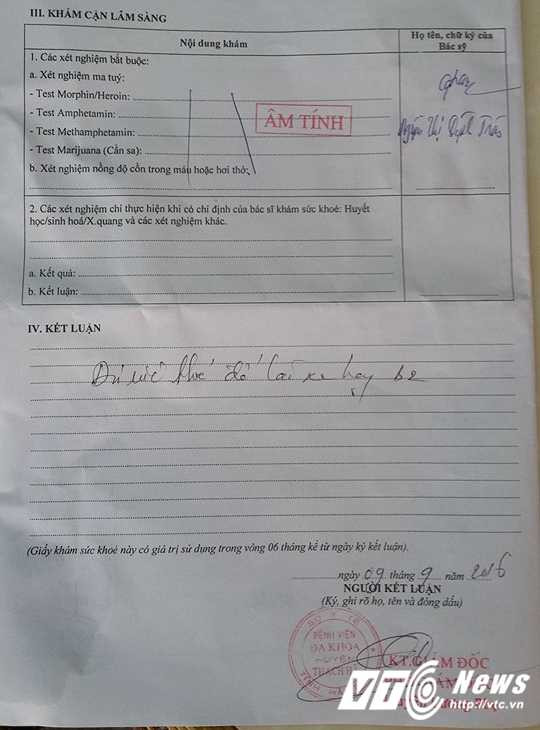 III. KHÁM CẬN LÂM SÀNG
Nội dung khám
Họ tên, chữ ký của
Bác sỹ
1. Các xét nghiệm bắt buộc:
a. Xét nghiệm ma tuý:
- Test Morphin/Heroin:
- Test Amphetamin:
- Test Methamphetamin:
- Test Marijuana (Cần sa):
ÂM TÍNH
b. Xét nghiệm nồng độ cồn trong máu hoặc hơi thở:
2. Các xét nghiệm chỉ thực hiện khi có chỉ định của bác sĩ khám sức khoẻ: Huyết
học/sinh hoá/X.quang và các xét nghiệm khác.
a. Kết quả:
b. Kết luận:
IV. KẾT LUẬN
Đủ sức khoẻ để lái xe hạng b2
(Giấy khám sức khoẻ này có giá trị sử dụng trong vòng 06 tháng kể từ ngày ký kết luận).
ngày 09 tháng 9 năm 2016
NGƯỜI KẾT LUẬN
(Ký, ghi rõ họ, tên và đóng dấu)
BỆNH VIỆN
ĐA KHOA
HUYỆN
KT.GIÁM ĐỐC
VTC News
http://vtc.vn